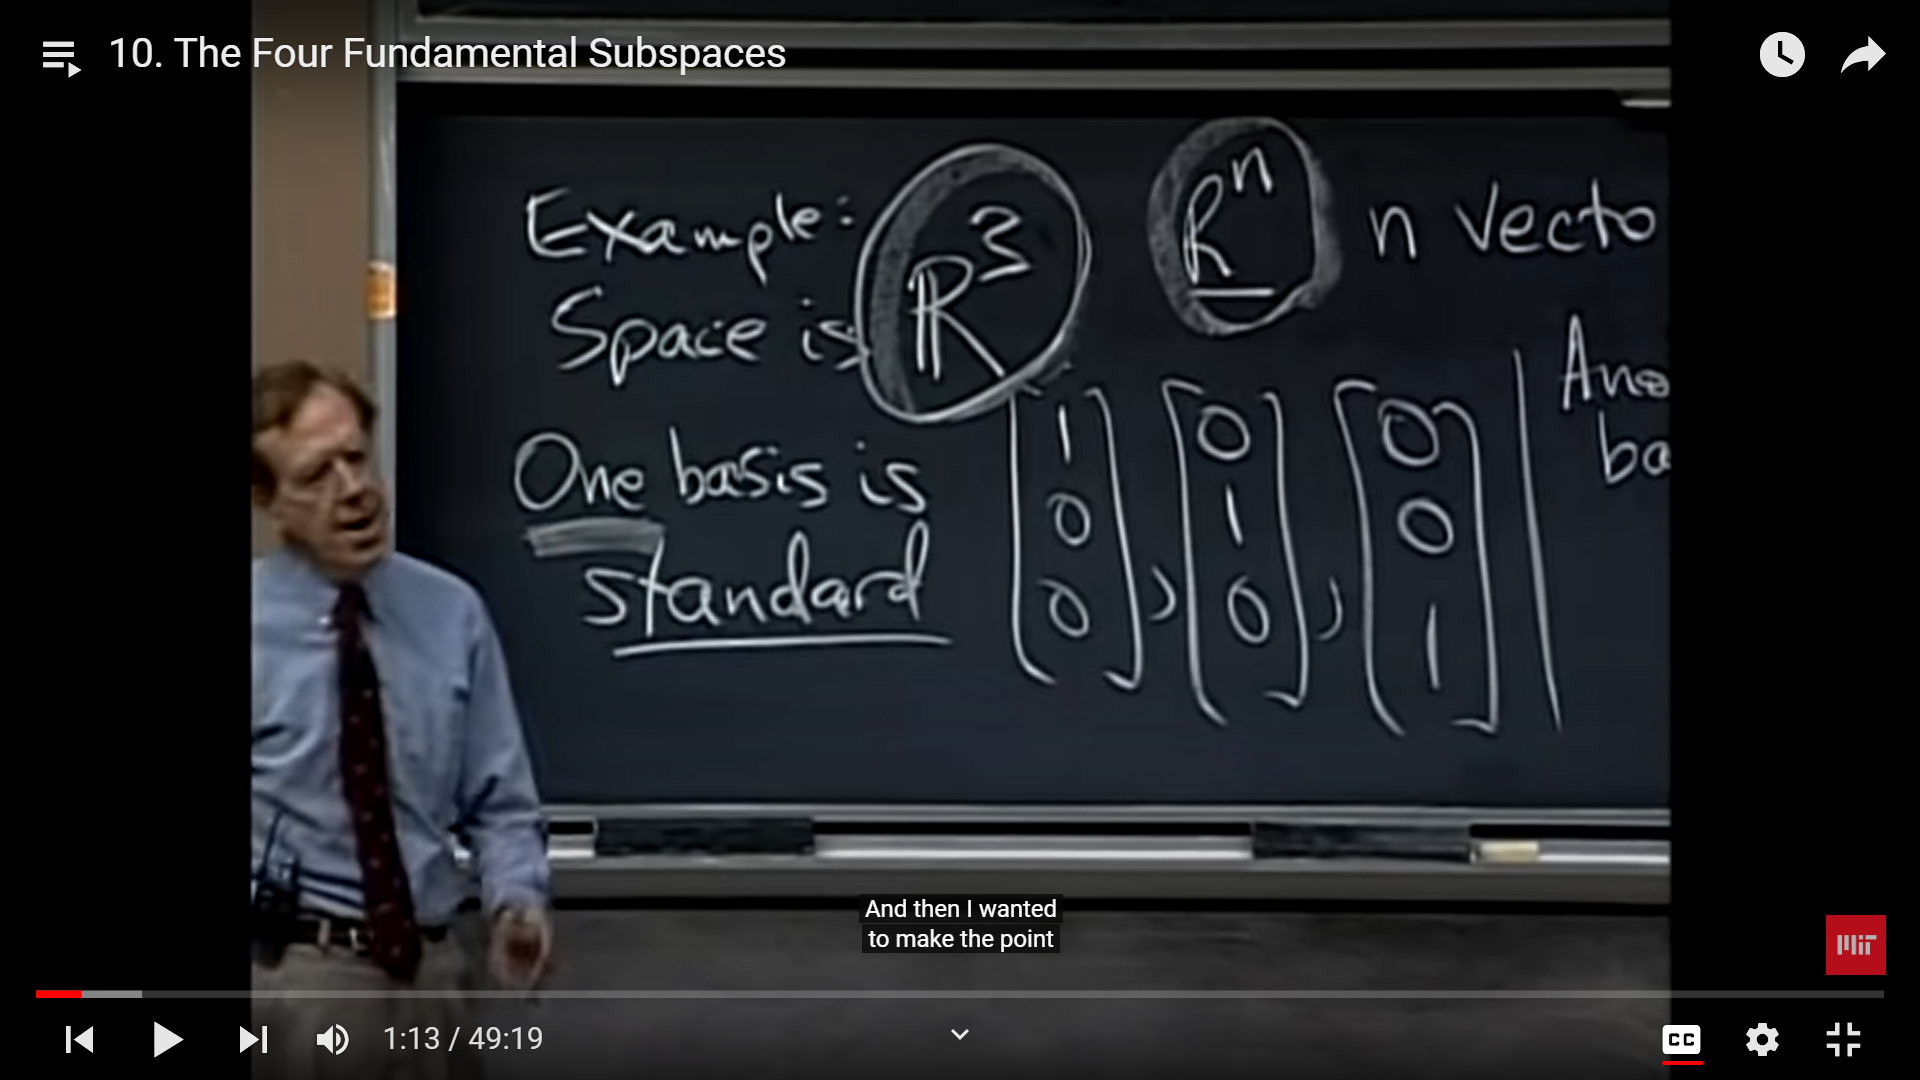 10. The Four Fundamental Subspaces
Example:
Space is ℝ³
Rⁿ n vecto
One basis is
standard
[1 0 0], [0 1 0], [0 0 1]
Ano
ba
And then I wanted
to make the point
MIT
1:13 / 49:19
CC